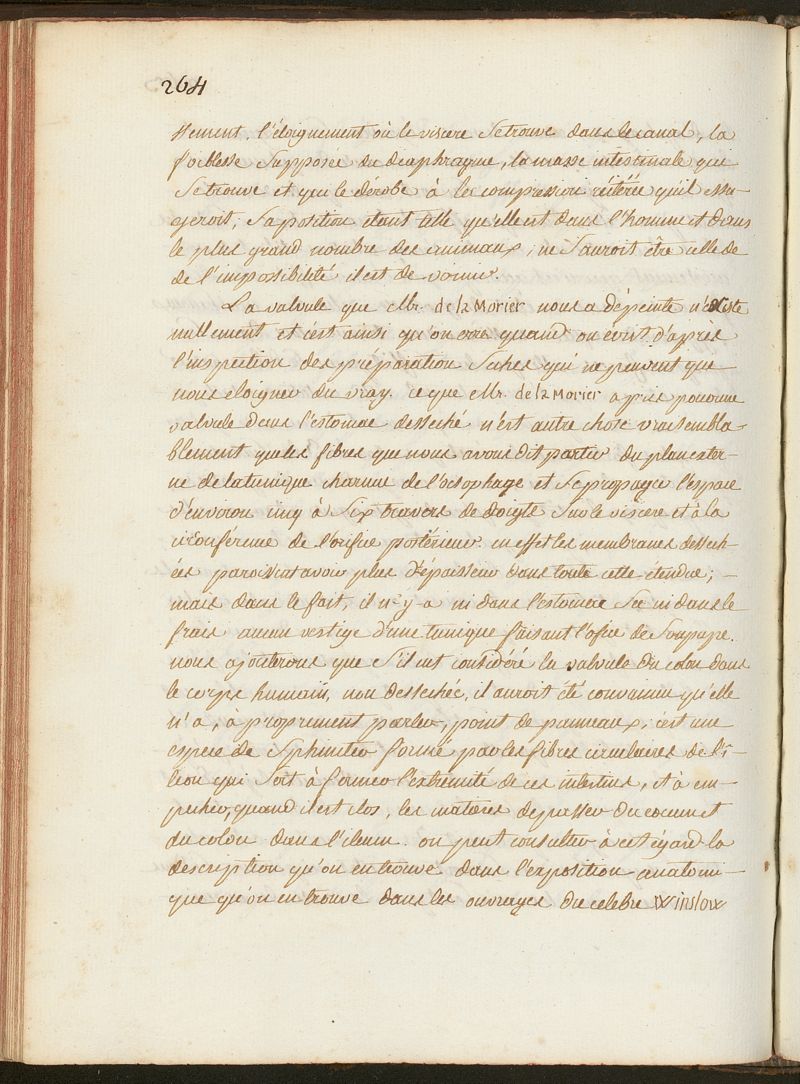 264
sement. l'éloignement où le viscere se trouve dans le canal, la
foiblesse supposée du diaphragme, la masse intestinale qui
se trouve et qui le dérobe à la compression réitérée qu'il essu-
yeroit, sa position étant telle qu'elle est dans l'homme et dans
le plus grand nombre des animaux, ne sauroit être celle de
de l'impossibilité il est de vomir.
La valvule que Mr. de la Morier nous a dépeinte n'existe
nullement et c'est ainsi qu'on erre quand on écrit d'après
l'inspection des préparation seches qui ne peuvent que
nous eloigner du vray. ce que Mr. de la Morier a pris pour une
valvule dans l'estomac desseché n'est autre chose vraisembla-
blement que les fibres que nous avons dit partir du plan exter-
ne de la tunique charnue de l'œsophage et se propager l'espace
d'environ cinq à six travers de doigts sur le viscere et à la
circonférence de l'orifice postérieur. en effet les membranes dessech-
ées paroissent avoir plus d'épaisseur dans toute cette étendue;
mais dans le fait, il n'y a ni dans l'estomac sec ni dans le
frais aucun vestige d'une tunique faisant l'ofice de soupape.
nous ajouterons que s'il eut considéré la valvule du colon dans
le corps humain, non dessechée, il auroit été convaincu qu'elle
n'a, à proprement parler, point de panneaux; c'est une
espece de sphincter formé par les fibres circulaires de l'i-
leon qui sert à former l'extrémité de ces intestins, et à em-
pecher, quand il est clos, les matieres de passer du cœcum et
du colon dans l'ileum. on peut consulter à cet égard la
description qu'on en trouve dans l'exposition anatomi-
que qu'on en trouve dans les ouvrages du celebre Winslow